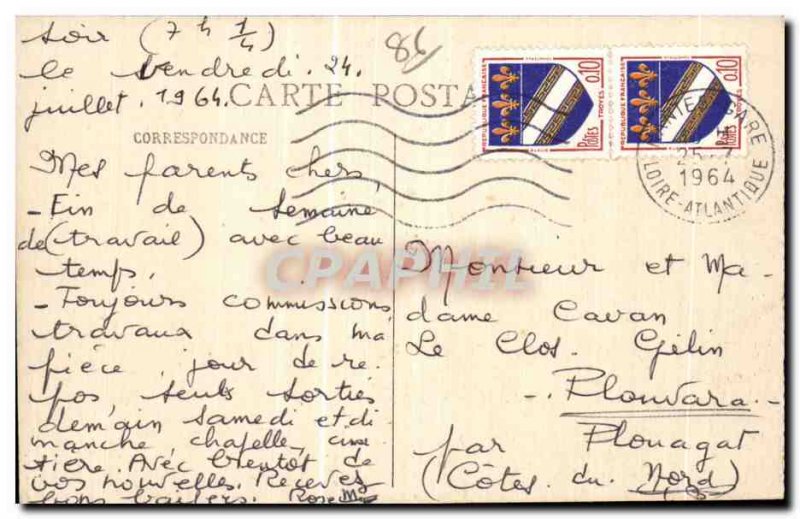 soir (7 h 1/4)
le vendredi. 24.
juillet. 1964.
86
CARTE POSTA
CORRESPONDANCE
Mes parents chers,
- Fin de semaine
de (travail) avec beau
temps.
- Toujours commissions,
travaux dans ma
pièce, jour de re.
pos seuls sorties
demain samedi et di
manche chapelle, cime
tière. Avec bientôt de
vos nouvelles. Recevez
bons baisers. Rose
REPUBLIQUE FRANÇAISE
TROYES
0,10
Postes
REPUBLIQUE FRANÇAISE
TROYES
0,10
Postes
GARE
25-7
1964
LOIRE-ATLANTIQUE
CPAPHIL
Monsieur et Ma-
dame Cavan
Le Clos. Gélin
- Plouvara. -
par Plouagat
(Côtes du Nord)